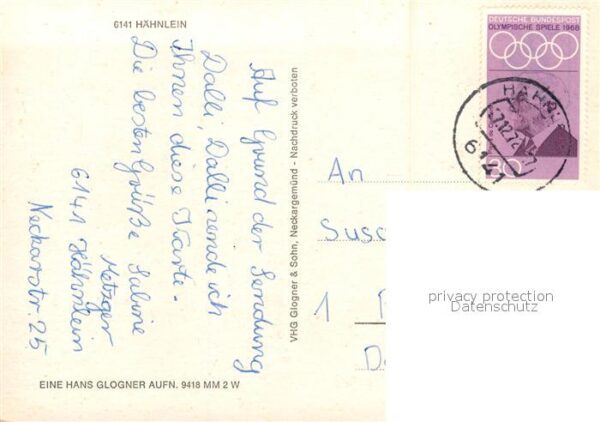 6141 HÄHNLEIN
Auf Grund der Sendung
Dalli, Dalli sende ich
Ihnen diese Karte.
Die besten Grüße Sabine
Metzger
6141 Hähnlein
Neckarstr. 25
EINE HANS GLOGNER AUFN. 9418 MM 2 W
VHG Glogner & Sohn, Neckargemünd - Nachdruck verboten
DEUTSCHE BUNDESPOST
OLYMPISCHE SPIELE 1968
6141
An
1
privacy protection
Datenschutz